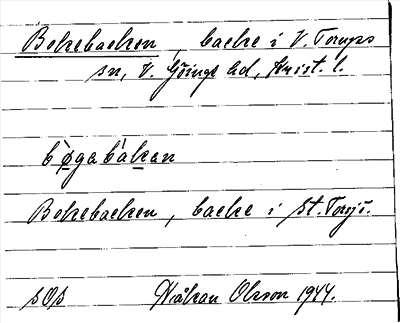 Bokebacken, backe i V. Torups
sn, V. Göinge hd, Krist. l.
bø̀gabàkan
Bokebacken, backe i St. Torsjö.
SOS Håkan Olsson 1944.